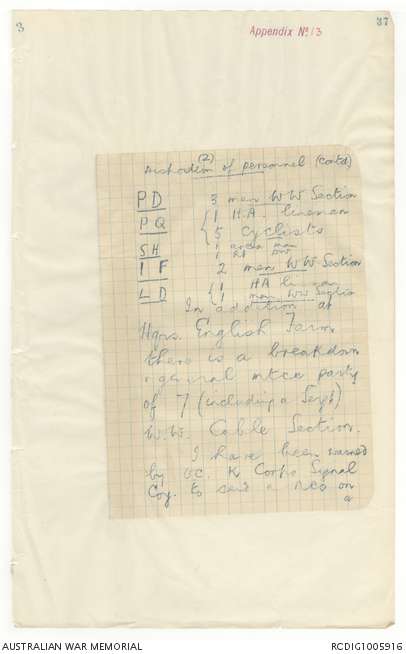 3
Appendix No 13
37
(2)
Distribution of personnel (contd)
PD 3 men W W Section
PQ 1 H.A. lineman
5 Cyclists
SH 1 area man
1
IF 2 men W W Section
LD 1 HA lineman
1 man WW Section
In addition at
Hqrs. English Farm
there is a breakdown
& general mtce party
of 7 (including a Sergt)
W.W. Cable Section.
I have been warned
by OC. K Corps Signal
Coy. to send a NCO on
a
AUSTRALIAN WAR MEMORIAL
RCDIG1005916